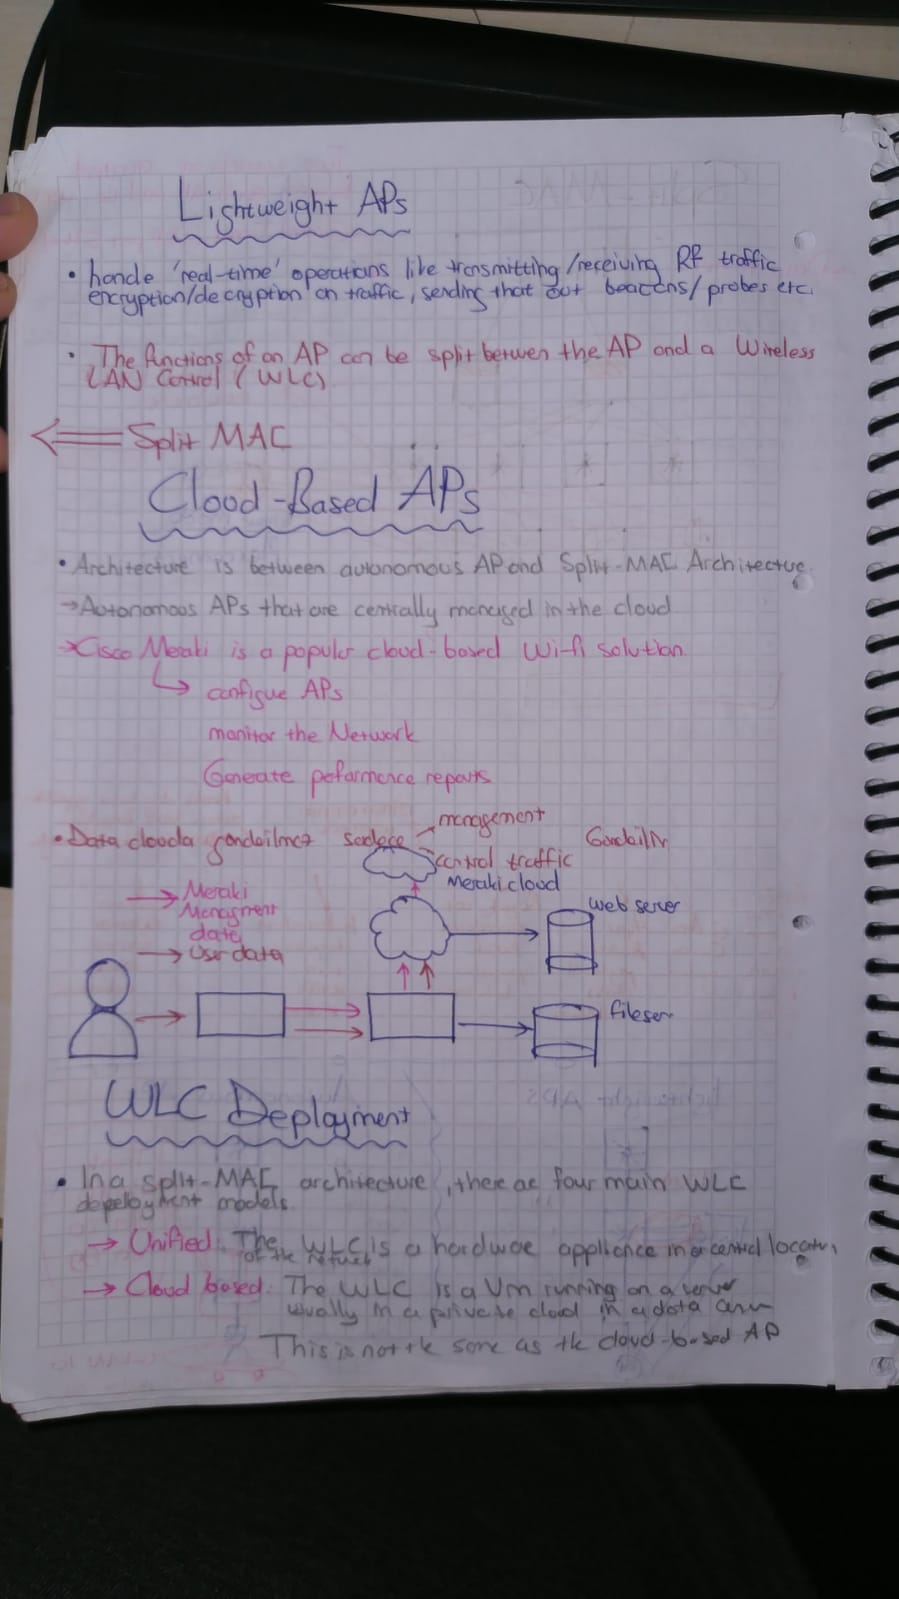 Lightweight APs
• handle 'real-time' operations like transmitting/receiving RF traffic
encryption/decryption on traffic, sending that out beacons/probes etc.
• The functions of an AP can be split betwen the AP and a Wireless
LAN Control (WLC)
Split MAC
Cloud-Based APs
• Architecture is between autonomous AP and Split-MAC Architectue.
→ Autonomous APs that are centally managed in the cloud
→ Cisco Meraki is a populer cloud-based Wi-fi solution.
configue APs
monitor the Network
Generate peformence reports
• Data clouda gonderilmez sadece
management
control traffic
Meraki cloud
→ Meraki
Manegment
data
→ User data
web server
fileser
WLC Deployment
• In a split-MAC architecture, there ae four main WLC
depeloyment models.
→ Unified: The WLC is a hardwae applience in a central location
of the network
→ Cloud based: The WLC is a Vm running on a server
usually in a private cloud in a data
This is not the same as the cloud-based AP